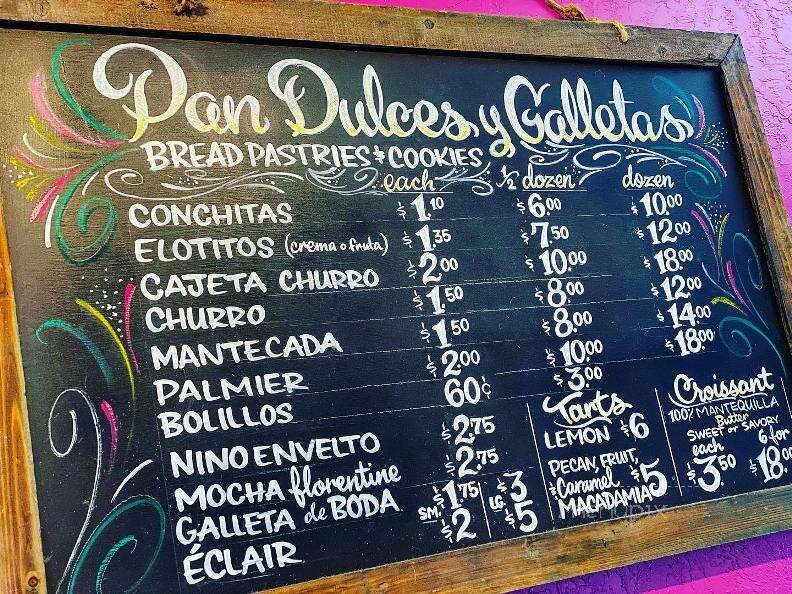 Pan Dulces y Galletas
BREAD PASTRIES & COOKIES
each ½ dozen dozen
CONCHITAS $1.10 $6.00 $10.00
ELOTITOS (crema o fruta) $1.35 $7.50 $12.00
CAJETA CHURRO $2.00 $10.00 $18.00
CHURRO $1.50 $8.00 $12.00
MANTECADA $1.50 $8.00 $14.00
PALMIER $2.00 $10.00 $18.00
BOLILLOS 60¢ $3.00
NINO ENVELTO $2.75
MOCHA florentine $2.75
GALLETA de BODA SM. $1.75 LG. $3
ÉCLAIR $2 $5
Tarts
LEMON $6
PECAN, FRUIT,
Caramel $5
MACADAMIA
Croissant
100% MANTEQUILLA
Butter
SWEET or SAVORY
each 6 for
$3.50 $18.00